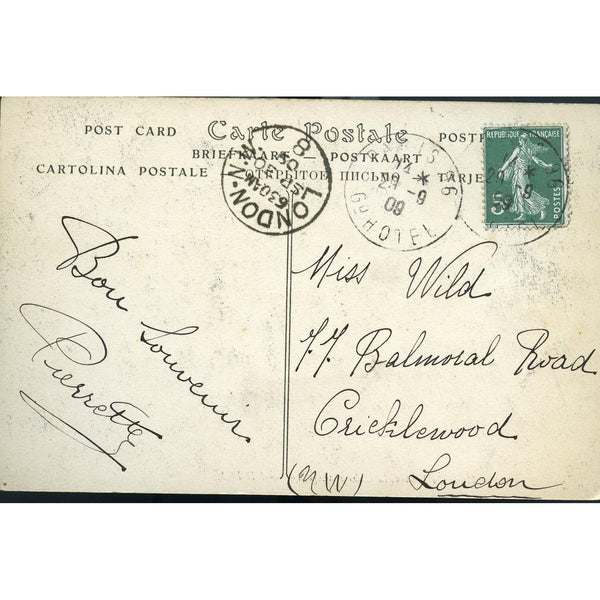 POST CARD Carte Postale POSTK
BRIEFKAART — POSTKAART
CARTOLINA POSTALE ОТКРЫТОЕ ПИСЬМО TARJE
LONDON. N.W.
6.30 AM
8
PARIS 96
29 - 9
09
Gd HOTEL
REPUBLIQUE FRANÇAISE
5c
POSTES
29 9
09
Bon Souvenir
Pierrette
Miss Wild
77 Balmoral Road
Cricklewood
(NW) London